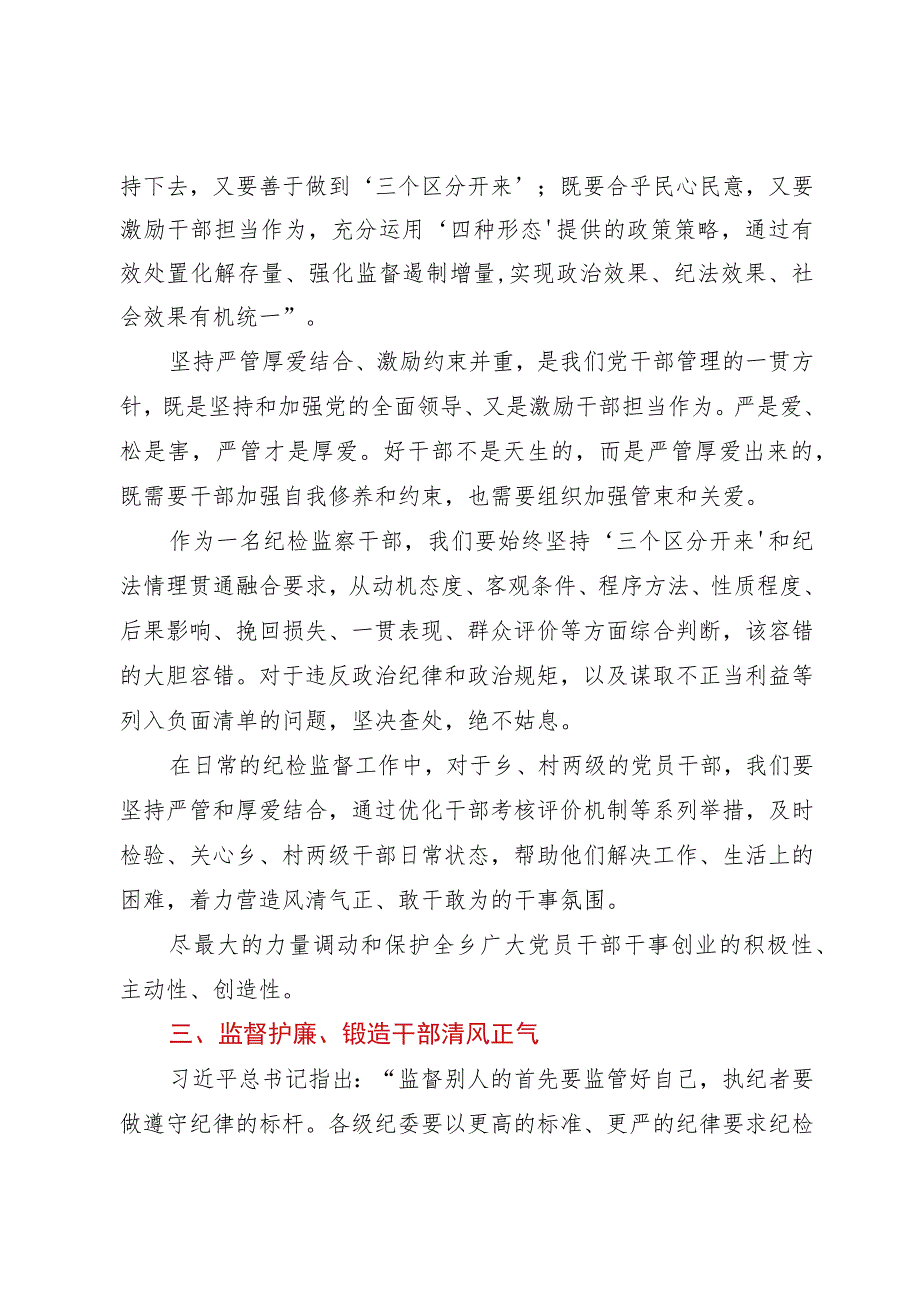 持下去，又要善于做到‘三个区分开来’；既要合乎民心民意，又要
激励干部担当作为，充分运用‘四种形态'提供的政策策略，通过有
效处置化解存量、强化监督遏制增量,实现政治效果、纪法效果、社
会效果有机统一”。
坚持严管厚爱结合、激励约束并重，是我们党干部管理的一贯方
针，既是坚持和加强党的全面领导、又是激励干部担当作为。严是爱、
松是害，严管才是厚爱。好干部不是天生的，而是严管厚爱出来的，
既需要干部加强自我修养和约束，也需要组织加强管束和关爱。
作为一名纪检监察干部，我们要始终坚持‘三个区分开来'和纪
法情理贯通融合要求，从动机态度、客观条件、程序方法、性质程度、
后果影响、挽回损失、一贯表现、群众评价等方面综合判断，该容错
的大胆容错。对于违反政治纪律和政治规矩，以及谋取不正当利益等
列入负面清单的问题，坚决查处，绝不姑息。
在日常的纪检监督工作中，对于乡、村两级的党员干部，我们要
坚持严管和厚爱结合，通过优化干部考核评价机制等系列举措，及时
检验、关心乡、村两级干部日常状态，帮助他们解决工作、生活上的
困难，着力营造风清气正、敢干敢为的干事氛围。
尽最大的力量调动和保护全乡广大党员干部干事创业的积极性、
主动性、创造性。
三、监督护廉、锻造干部清风正气
习近平总书记指出：“监督别人的首先要监管好自己，执纪者要
做遵守纪律的标杆。各级纪委要以更高的标准、更严的纪律要求纪检